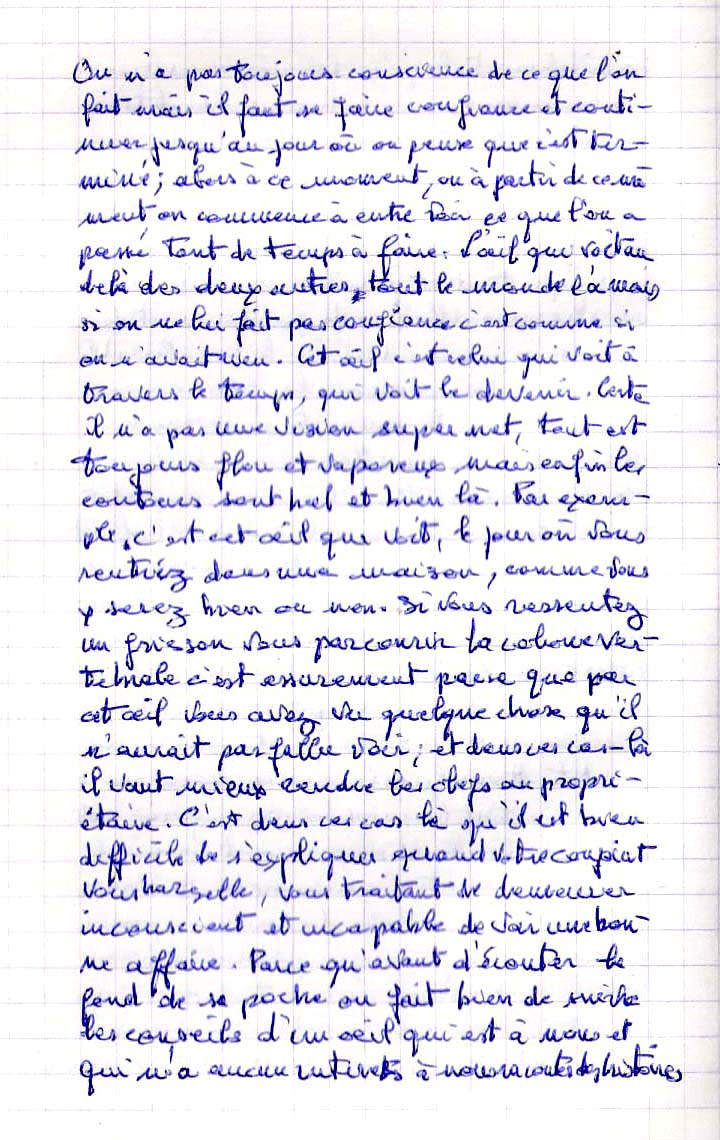 On n'a pas toujours conscience de ce que l'on
fait mais il faut se faire confiance et conti-
nuer jusqu'au jour où on pense que c'est ter-
miné; alors à ce moment, ou à partir de ce mo
ment on commence à entre voir ce que l'on a
passé tant de temps à faire. L'œil qui voit au
delà des deux autres, tout le monde l'a mais
si on ne lui fait pas confiance c'est comme si
on n'avait rien. Cet œil c'est celui qui voit à
travers le temps, qui voit le devenir. Certe
il n'a pas une vision super net, tout est
toujours flou et vaporeux mais enfin les
contours sont bel et bien là. Par exem-
ple, c'est cet œil qui voit, le jour où vous
rentrez dans une maison, comme vous
y serez bien ou non. Si vous ressentez
un frisson vous parcourir la colonne ver-
tebrale c'est assurement parce que par
cet œil vous avez vu quelque chose qu'il
n'aurait pas fallu voir; et dans ces cas-là
il vaut mieux rendre les clefs au propri-
étaire. C'est dans ces cas là qu'il est bien
difficile de s'expliquer quand votre conjoint
vous harzelle, vous traitant de demeurer
inconscient et incapable de voir une bon-
ne affaire. Parce qu'avant d'écouter le
fond de sa poche on fait bien de suivre
les conseils d'un œil qui est à nous et
qui n'a aucun interets à nous raconter des histoires